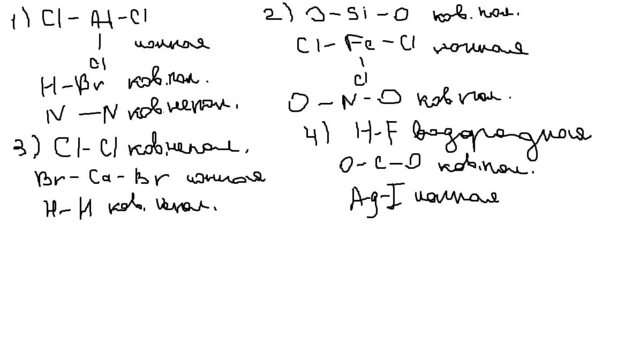 1) Cl - Al - Cl
ионная
Cl
H - Br ков.пол.
N - N ков.непол.
2) O - Si - O ков.пол.
Cl - Fe - Cl ионная
Cl
O - N - O ков пол.
3) Cl - Cl ков.непол.
Br - Ca - Br ионная
H - H ков. непол.
4) H - F водородная
O - C - O ков.пол.
Ag - I ионная